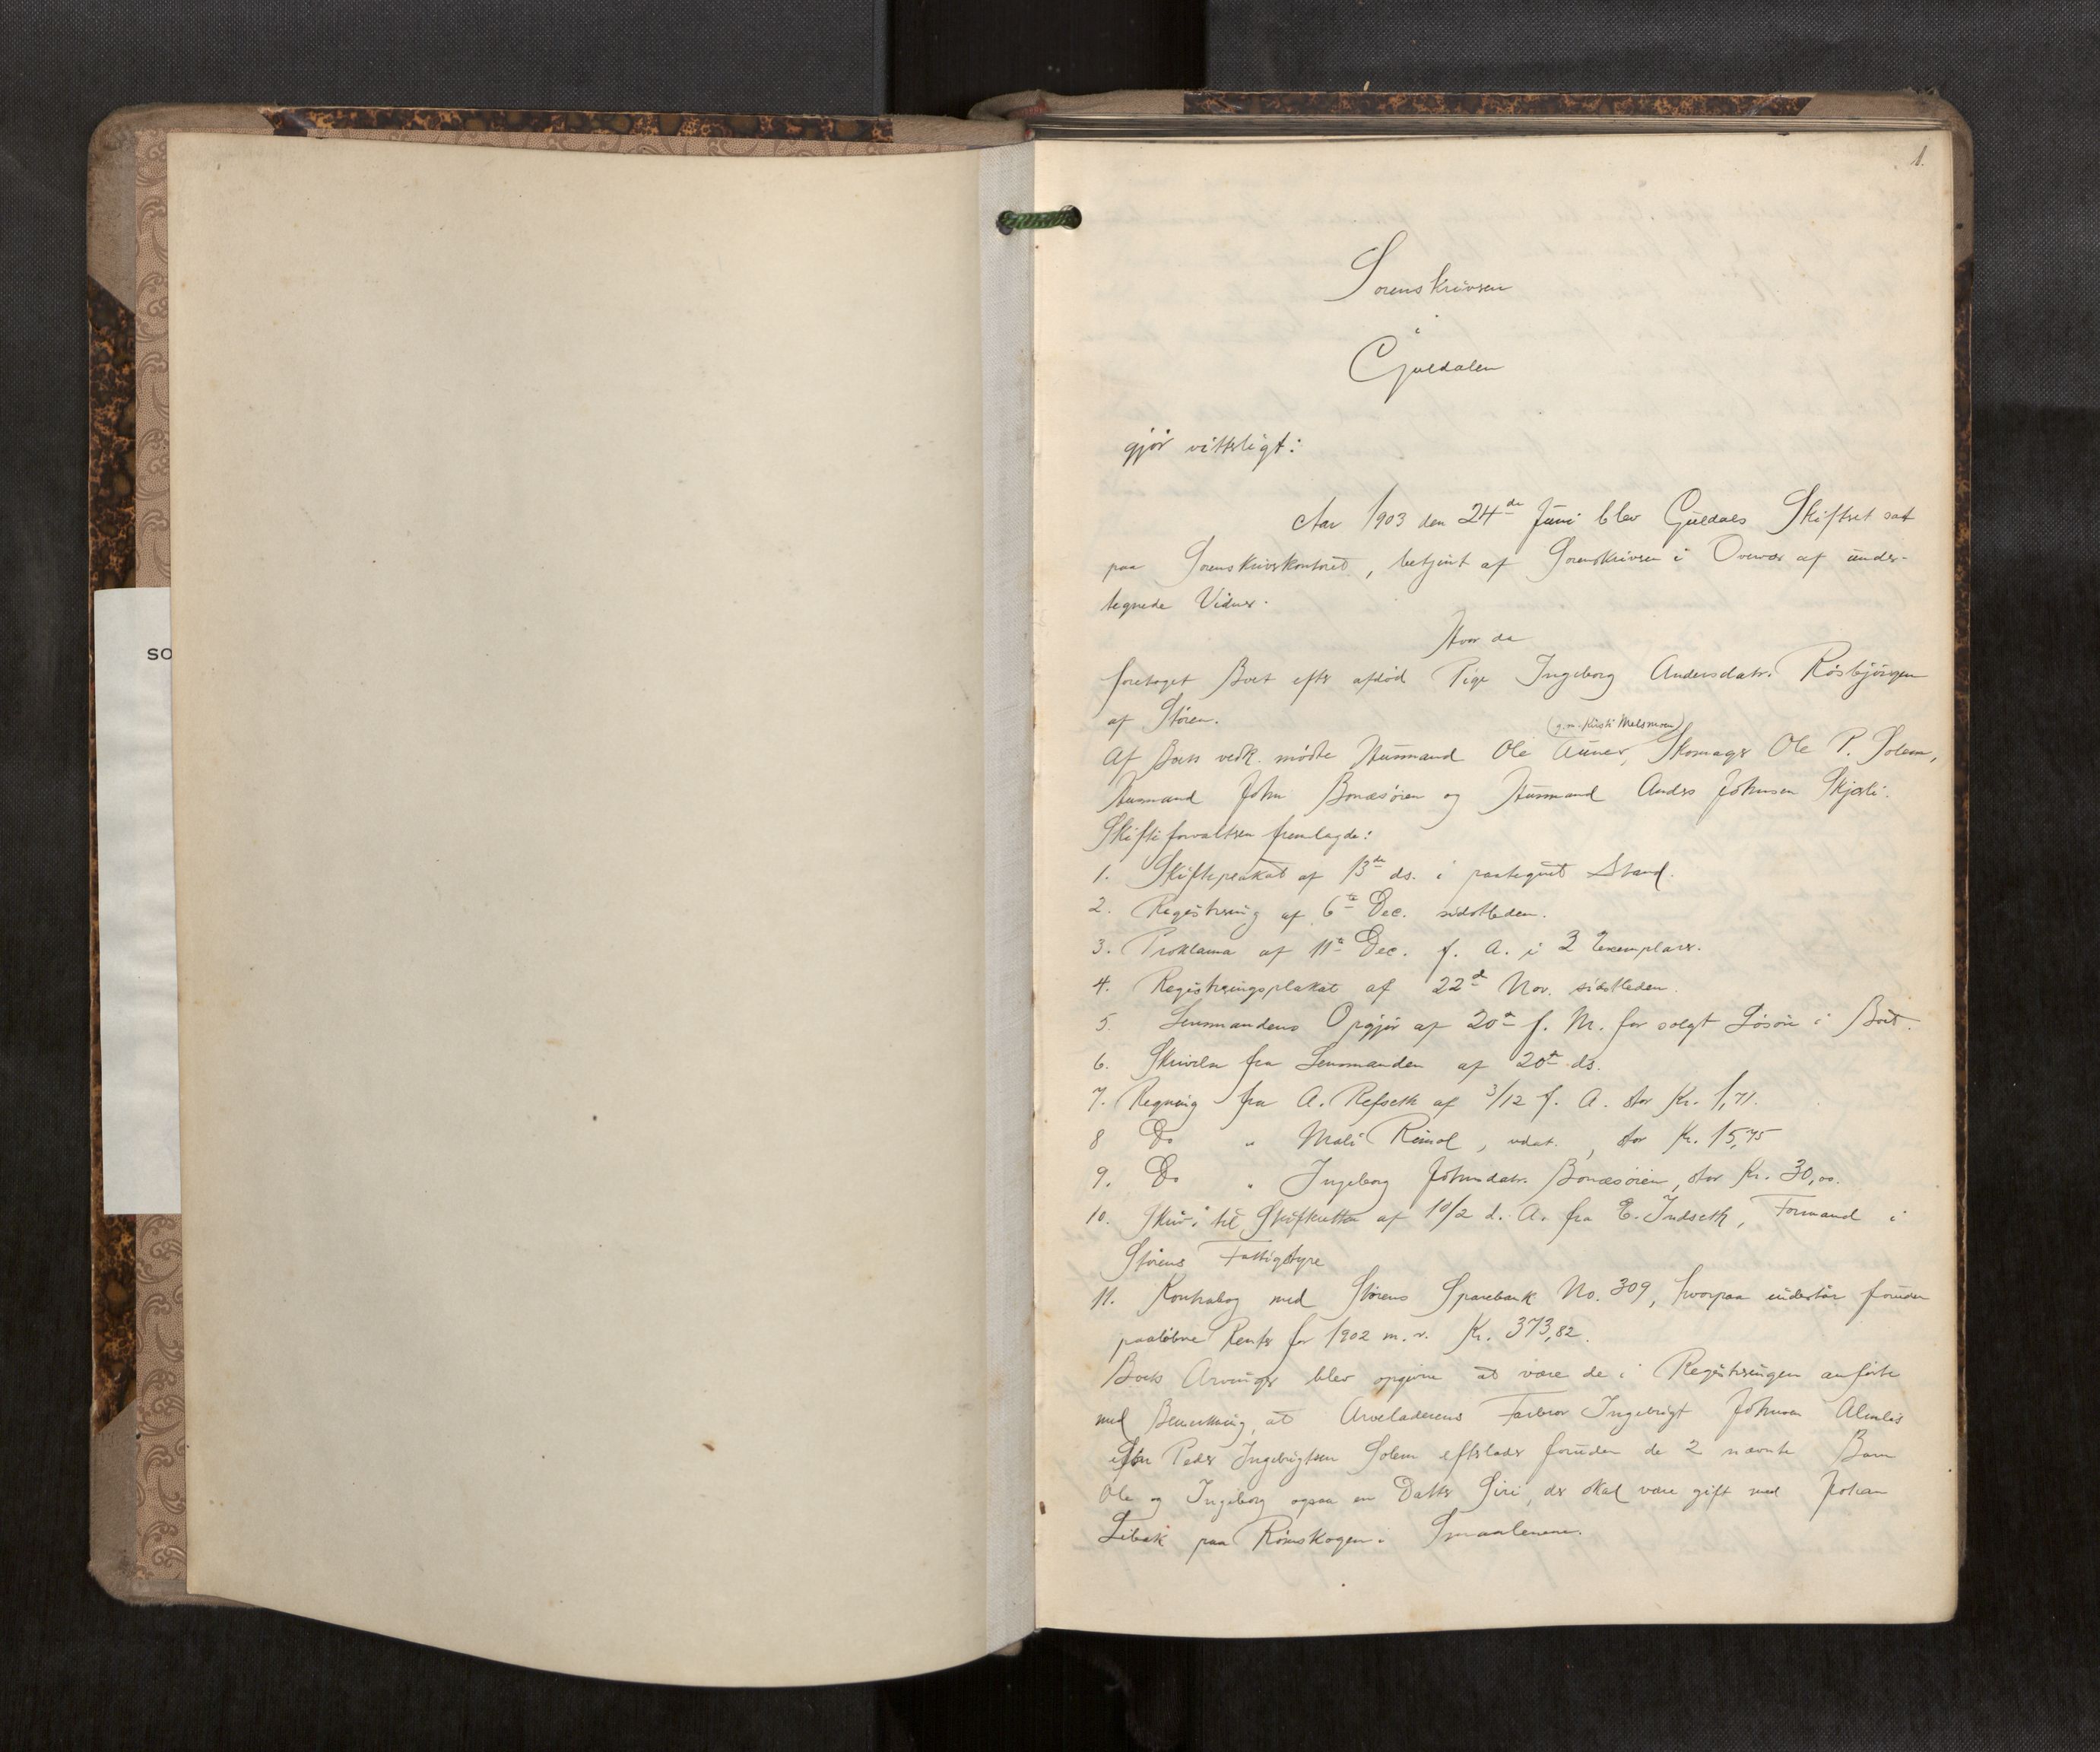 SO
1.
Sorenskriveren
i
Guldalen
gjør vitterligt:
Aar 1903 den 24de Juni blev Guldals Skifteret sat
paa Sorenskriverkontoret, betjent af Sorenskriveren i Overvær af under-
tegnede Vidner.
Hvor da
foretoges Boet efter afdød Pige Ingeborg Andersdatr. Rosbjørgen
af Støren.
(g. m. Kirsti Melsmoen)
Af Boets vedk. mødte Husmand Ole Aunev, Skomager Ole P. Solem,
Husmand John Bonæsøien og Husmand Anders Johnsen Skjærli.
Skifteforvalteren fremlagde:
1. Skifteplakat af 13de ds. i paategnet Stand.
2. Registrering af 6te Dec. sidstleden.
3. Proklama af 11te Dec. f. A. i 3 Exemplarer.
4. Registreringsplakat af 22de Nov. sidstleden.
5. Lensmandens Opgjør af 20de f. M. for solgt Løsøre i Boet.
6. Skrivelse fra Lensmanden af 20de ds.
7. Regning fra A. Refseth af 3/12 f. A. stor Kr. 1,71.
8 Do " Mali Rimol, udat., stor Kr. 15,75
9. Do " Ingeborg Johnsdatr. Bonæsøien, stor Kr. 30,00.
10. Skriv. til Skifteretten af 10/2 d. A. fra E. Indseth, Formand i
Størens Fattigstyre
11. Kontrabog med Størens Sparebank No. 309, hvorpaa indestaar foruden
paaløbne Renter for 1902 m. v. Kr. 373,82.
Boets Arvinger blev opgivne at være de i Registreringen anførte
med Bemerkning, at Arveladerens Farbror Ingebrigt Johnsen Almlis
Søn Peder Ingebrigtsen Solem efterlader foruden de 2 nævnte Børn
Ole og Ingeborg ogsaa en Datter Siri, der skal være gift med Johan
Libak paa Rømskogen i Smaalenene.